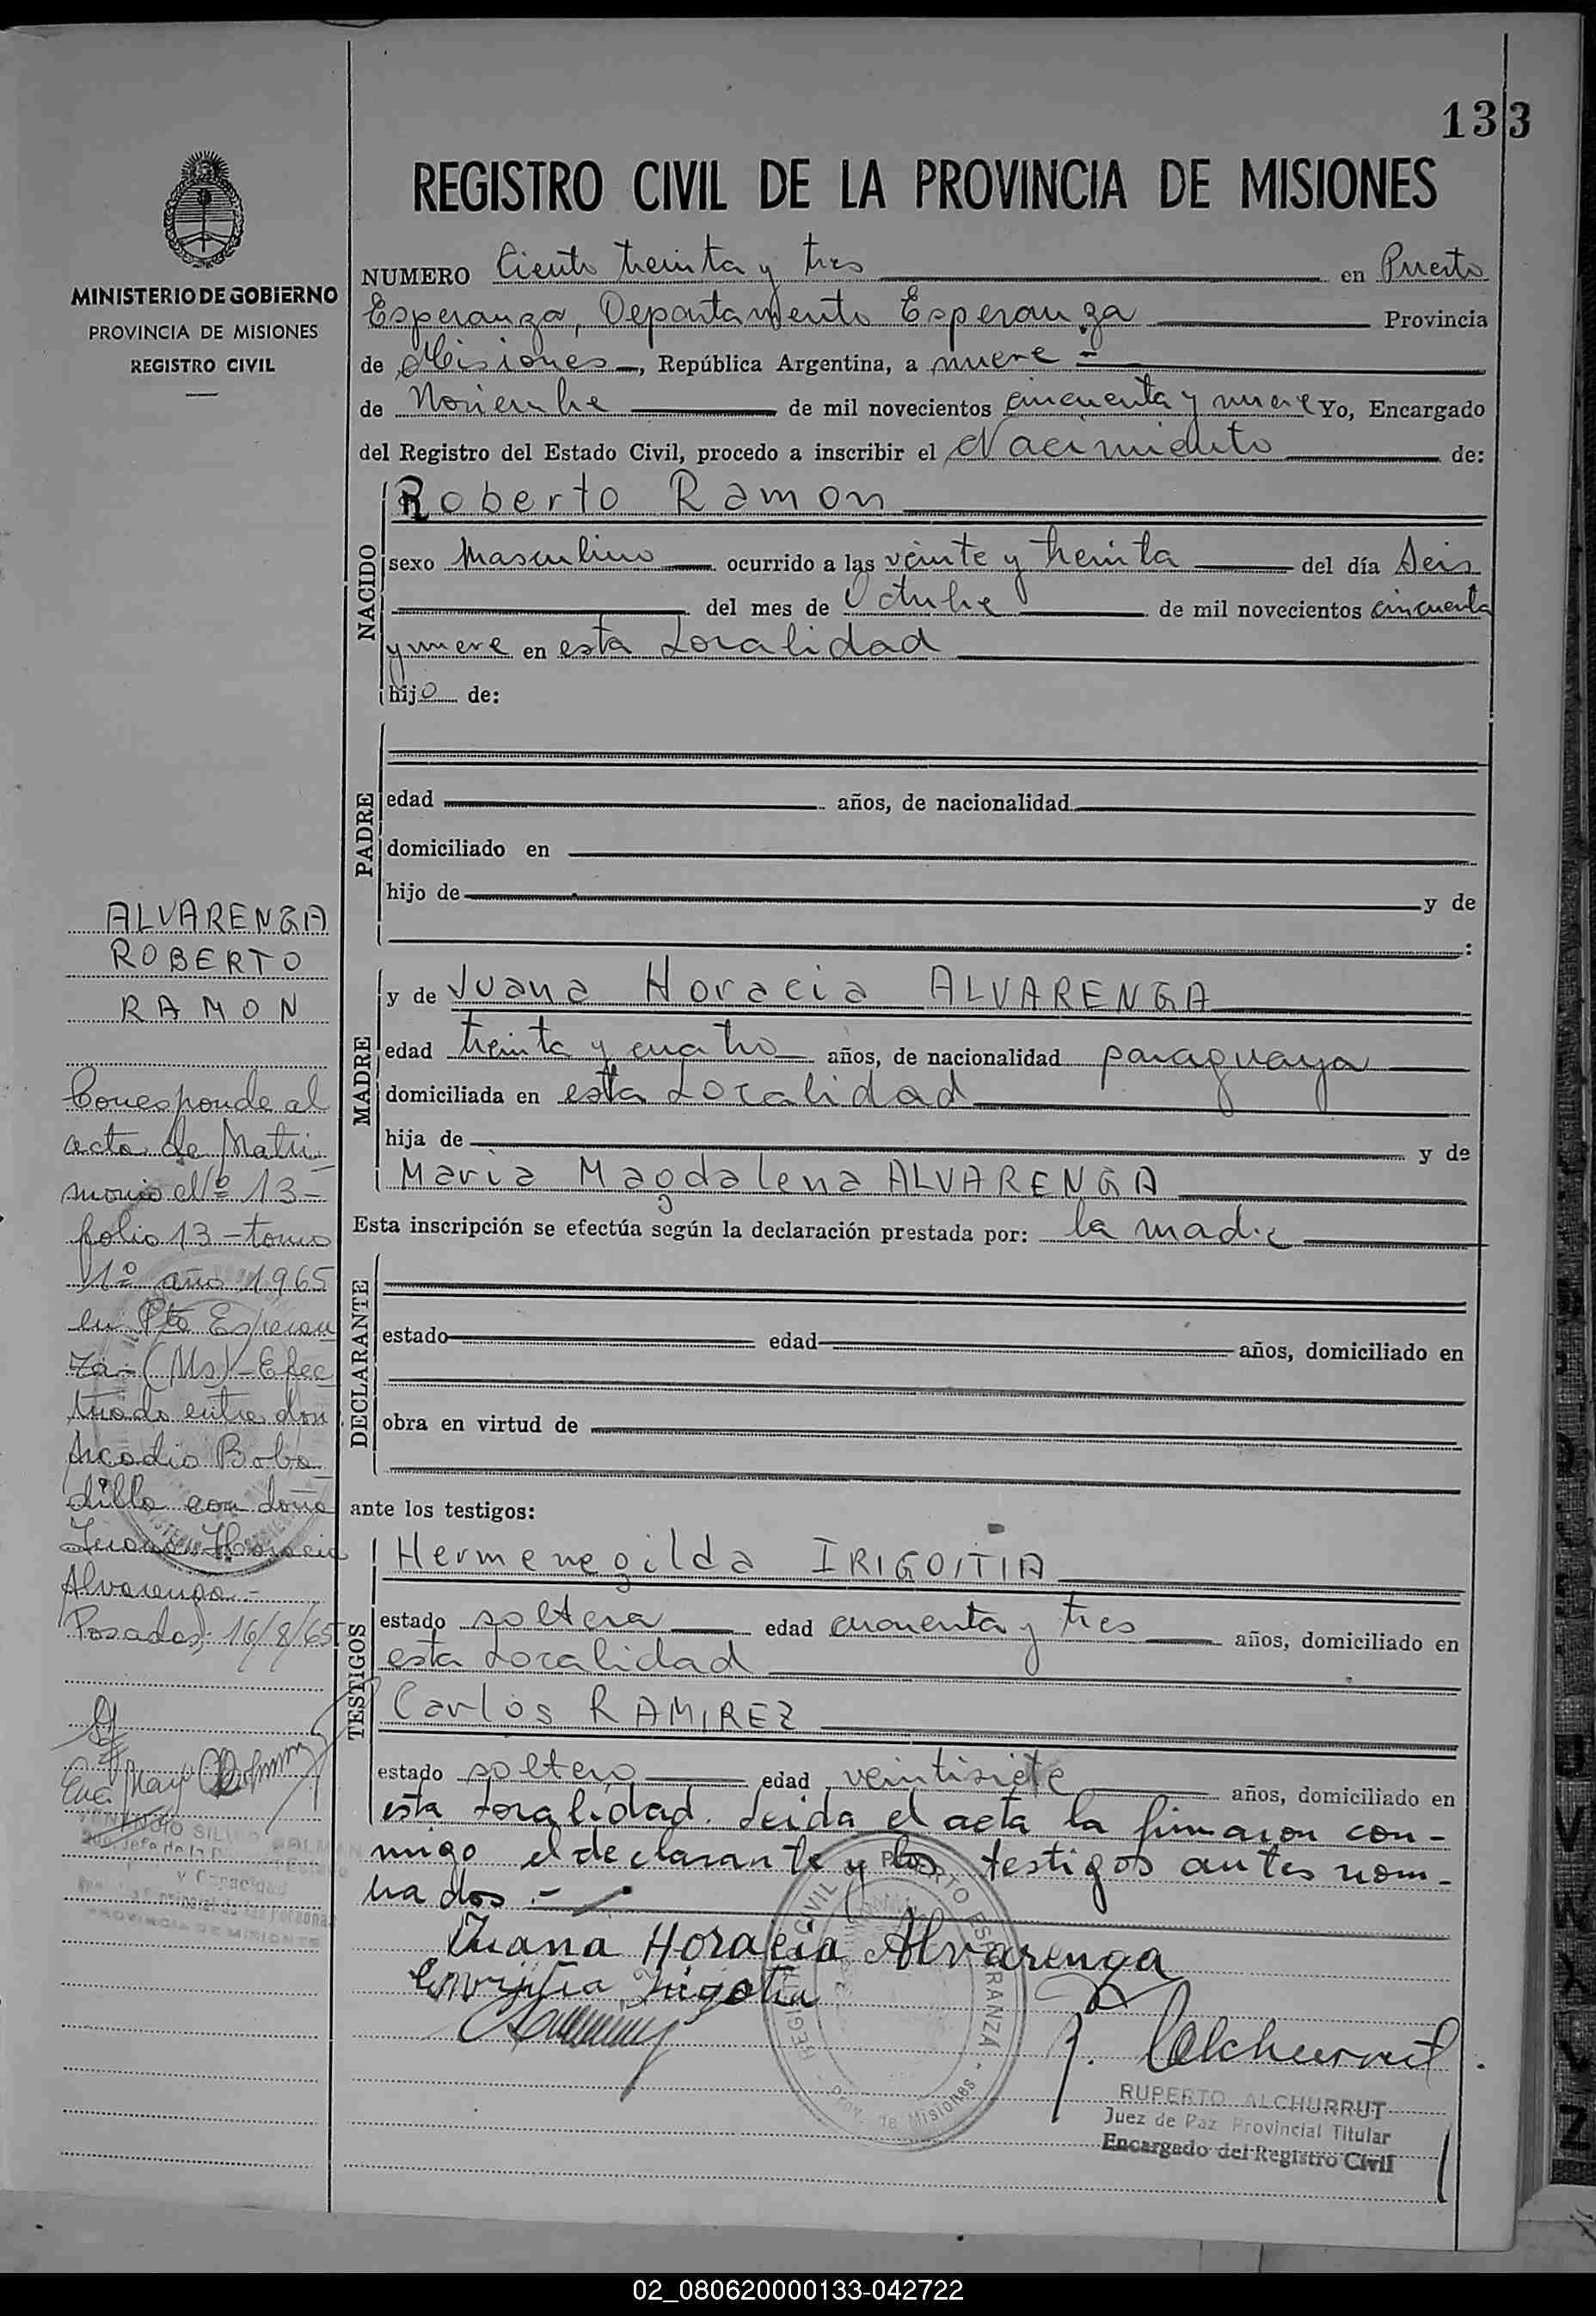 133
REGISTRO CIVIL DE LA PROVINCIA DE MISIONES
MINISTERIO DE GOBIERNO
PROVINCIA DE MISIONES
REGISTRO CIVIL
NUMERO Ciento treinta y tres en Puerto
Esperanza, Departamento Esperanza Provincia
de Misiones, República Argentina, a nueve
de Noviembre de mil novecientos cincuenta y nueve Yo, Encargado
del Registro del Estado Civil, procedo a inscribir el Nacimiento de:
NACIDO
Roberto Ramon
sexo Masculino ocurrido a las veinte y treinta del día Seis
del mes de Octubre de mil novecientos cincuenta
y nueve en esta Localidad
hijo de:
PADRE
edad años, de nacionalidad
domiciliado en
hijo de y de
:
MADRE
y de Juana Horacia ALVARENGA
edad treinta y cuatro años, de nacionalidad paraguaya
domiciliada en esta Localidad
hija de y de
Maria Magdalena ALVARENGA
Esta inscripción se efectúa según la declaración prestada por: la madre
DECLARANTE
estado edad años, domiciliado en
obra en virtud de
ante los testigos:
TESTIGOS
Hermenegilda IRIGOITIA
estado soltera edad cuarenta y tres años, domiciliado en
esta Localidad
Carlos RAMIREZ
estado soltero edad veintisiete años, domiciliado en
esta Localidad. Leida el acta la firmaron con-
migo el declarante y los testigos antes nom-
brados.-
Juana Horacia Alvarenga
Irigotia
R. Alchurrut
REGISTRO CIVIL PUERTO ESPERANZA - Prov. de Misiones -
RUPERTO ALCHURRUT
Juez de Paz Provincial Titular
Encargado del Registro Civil
ALVARENGA
ROBERTO
RAMON
Corresponde al
acta de Matri-
monio Nº 13-
folio 13 - tomo
1º año 1965
en Pto Esperan
za - (Ms) - Efec
tuado entre don
Arcadio Boba
dilla con doña
Juana Horacia
Alvarenga.-
Posadas, 16/8/65
y Capacidad
PROVINCIA DE MISIONES
02_080620000133-042722